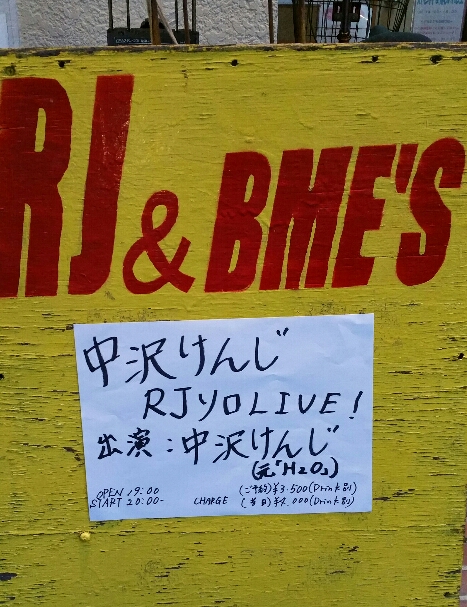 RJ & BME'S
中沢けんじ
RJソロLIVE!
出演:中沢けんじ
(元「H2O」)
OPEN 19:00
START 20:00-
CHARGE (ご予約)¥3.500(Drink別)
(当日)¥4.000(Drink別)